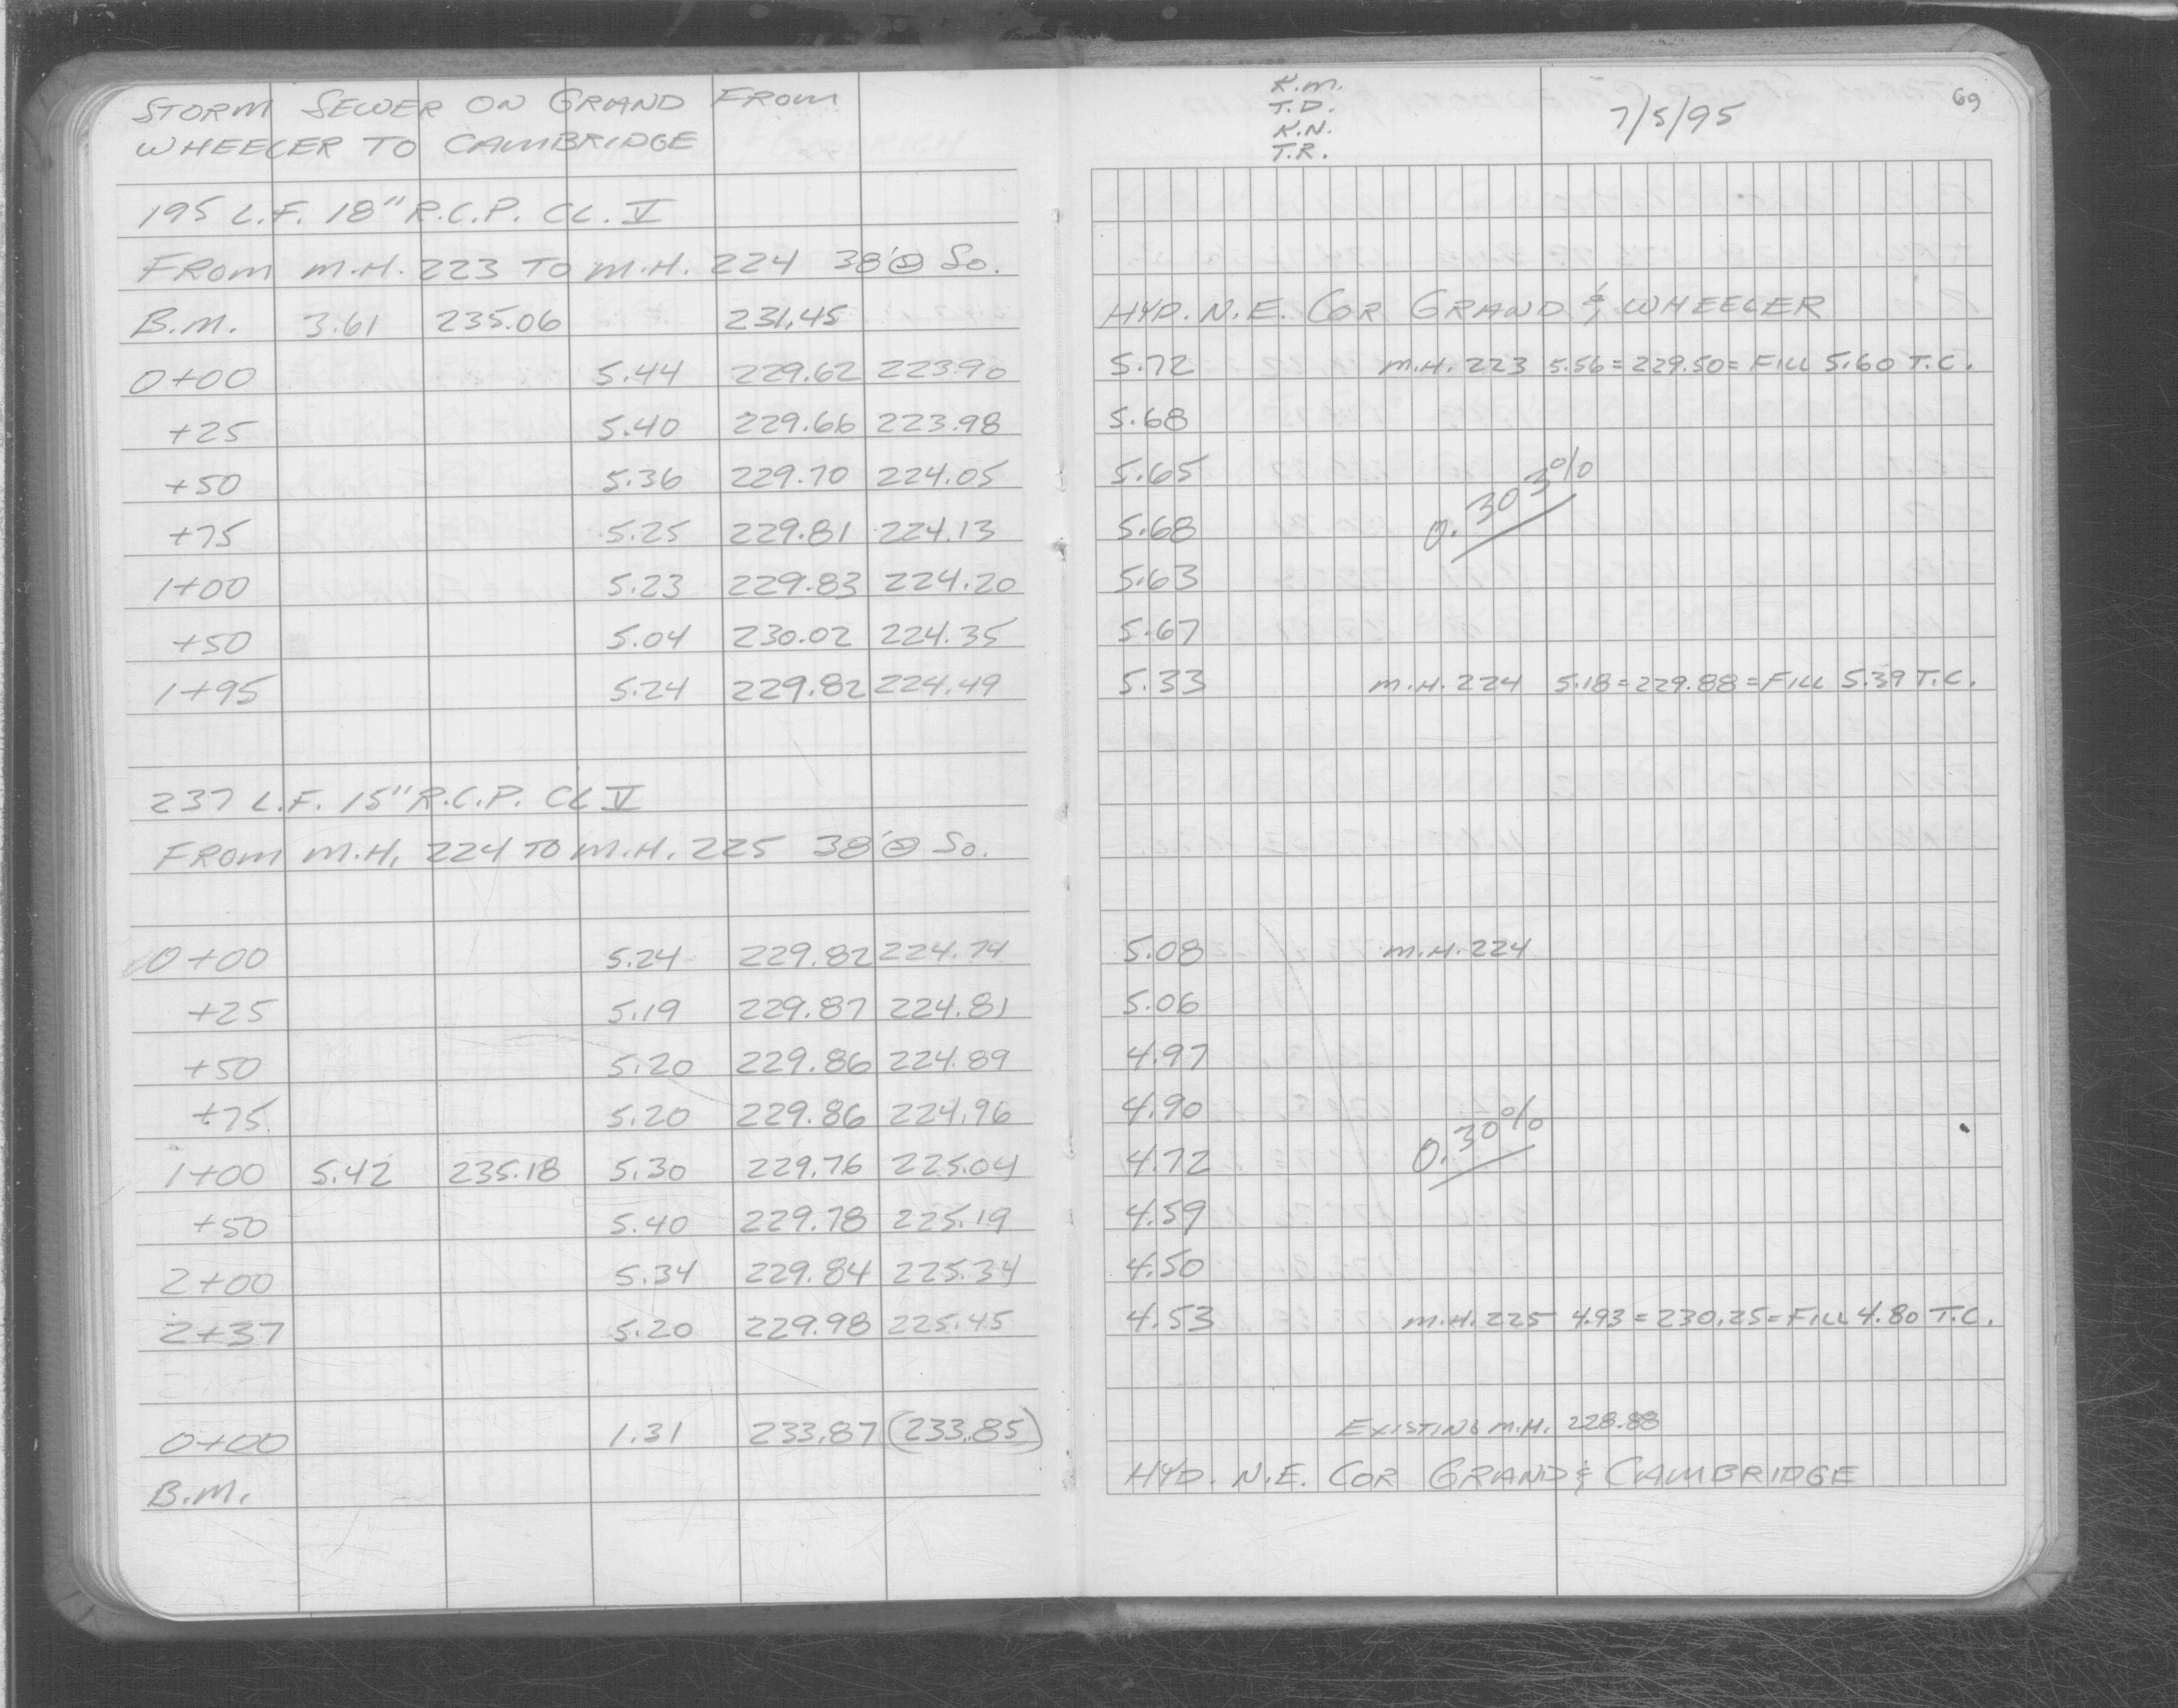 STORM SEWER ON GRAND FROM
WHEELER TO CAMBRIDGE
195 L.F. 18" R.C.P. CL. V
FROM M.H. 223 TO M.H. 224 38' So.
B.M. 3.61 235.06 231.45
0+00 5.44 229.62 223.90
+25 5.40 229.66 223.98
+50 5.36 229.70 224.05
+75 5.25 229.81 224.13
1+00 5.23 229.83 224.20
+50 5.04 230.02 224.35
1+95 5.24 229.82 224.49
237 L.F. 15" R.C.P. CL V
FROM M.H. 224 TO M.H. 225 38' So.
0+00 5.24 229.82 224.74
+25 5.19 229.87 224.81
+50 5.20 229.86 224.89
+75 5.20 229.86 224.96
1+00 5.42 235.18 5.30 229.76 225.04
+50 5.40 229.78 225.19
2+00 5.34 229.84 225.34
2+37 5.20 229.98 225.45
0+00 1.31 233.87 (233.85)
B.M.
K.M.
T.D.
K.N.
T.R.
7/5/95
69
HYD. N.E. COR GRAND & WHEELER
5.72 M.H. 223 5.56 = 229.50 = FILL 5.60 T.C.
5.68
5.65
0.303%
5.68
5.63
5.67
5.33 M.H. 224 5.18 = 229.88 = FILL 5.39 T.C.
5.08 M.H. 224
5.06
4.97
4.90
0.30%
4.72
4.59
4.50
4.53 M.H. 225 4.93 = 230.25 = FILL 4.80 T.C.
EXISTING M.H. 228.88
HYD. N.E. COR GRAND & CAMBRIDGE